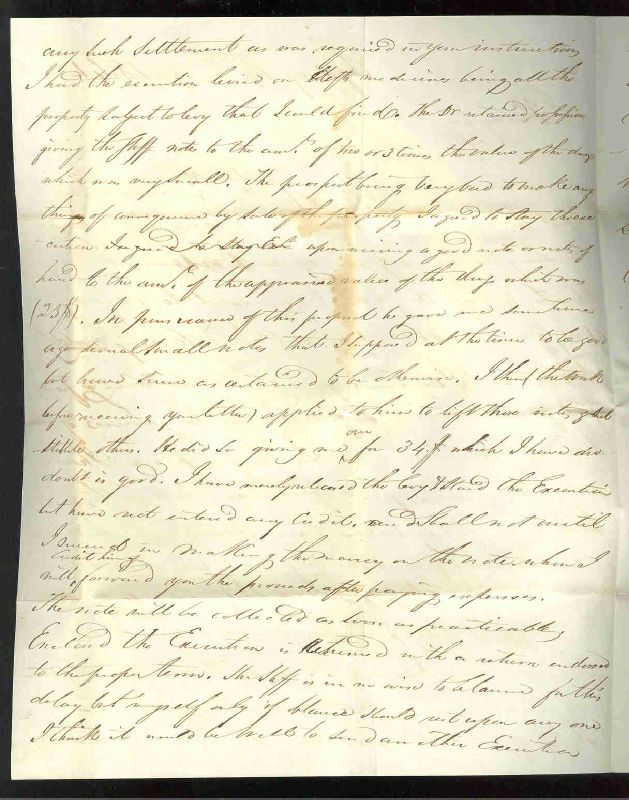 any such settlement as was required in your instructions
I had the execution levied on medicines being all the
property subject to levy that I could find. the Dr retained possession
giving the Shff note to the amt. of two or 3 times the value of the drugs
which was very small. The prospect being very bad to make any
thing of consequence by sale of the property I agreed to stay the exe
cution I agreed to stay upon receiving a good note or notes of
hand to the amt. of the appraised value of the drugs which was
(23$). In pursuance of this proposal he gave me sometime
ago several small notes that I supposed at the time to be good
but have since ascertained to be otherwise. I then (this week
before receiving your letter) applied to him to lift those notes &
settle them. He did so giving me one for 34.$ which I have no
doubt is good. I have merely released the levy & the Execution
but have not entered any Credit. and shall not until
I succeed in making the money on the note. when I
will Credit him & forward you the proceeds after paying expenses.
The note will be collected as soon as practicable,
Enclosed the Execution is returned with a return endorsed
to the proper term. The Shff is in no wise to blame for this
delay but myself only if blame should rest upon any one
I think it would be well to send another Execution